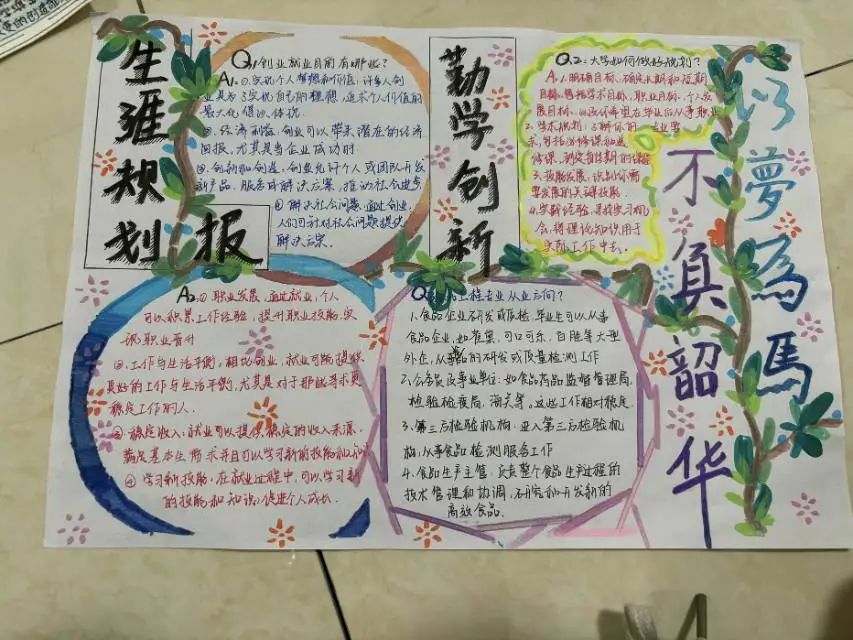 生涯规划报
Q1创业就业目前有哪些?
A1:①.实现个人梦想和价值,许多人创
业是为了实现自己的理想,追求个人价值的
最大化体现.
②.经济利益,创业可以带来潜在的经济
回报,尤其是当企业成功时.
③.创新和创造,创业允许个人或团队开发
新产品、服务或解决方案,推动社会进步
④解决社会问题,通过创业,
人们可针对社会问题提供
解决方案.
勤学创新
Q2:大学如何做好规划?
A:1.明确目标,确定长期和短期
目标,包括学术目标,职业目标,个人发
展目标,
2.学术规划:了解你的专业要
求,包括必修课和选
修课,制定每学期的课程
3.技能发展,识别你需
要发展的关键技能.
4.实际经验,寻找实习机
会,将理论知识用于
实际工作中去.
以夢為馬
不負韶华
A2①职业发展,通过就业,个人
可以积累工作经验,提升职业技能,实
现职业晋升
②.工作与生活平衡,相比创业,就业可能提供
更好的工作与生活平衡,尤其是对于那些寻求更
稳定工作的人.
③稳定收入,就业可以提供稳定的收入来源,
满足基本生活需求并且可以学习新的技能和知识
④学习新技能,在就业过程中,可以学习新
的技能和知识,促进个人成长.
工程专业从业方向?
1.食品企业研发或质检,毕业生可以从事
食品企业,如雀巢,可口可乐,百胜等大型
外企,从事食品的研发或质量检测工作
2.公务员及事业单位:如食品药品监督管理局,
检验检疫局,海关等.这些工作相对稳定.
3.第三方检验机构:进入第三方检验机
构,从事食品检测服务工作
4.食品生产主管,负责整个食品生产过程的
技术管理和协调,研究和开发新的
高效食品.